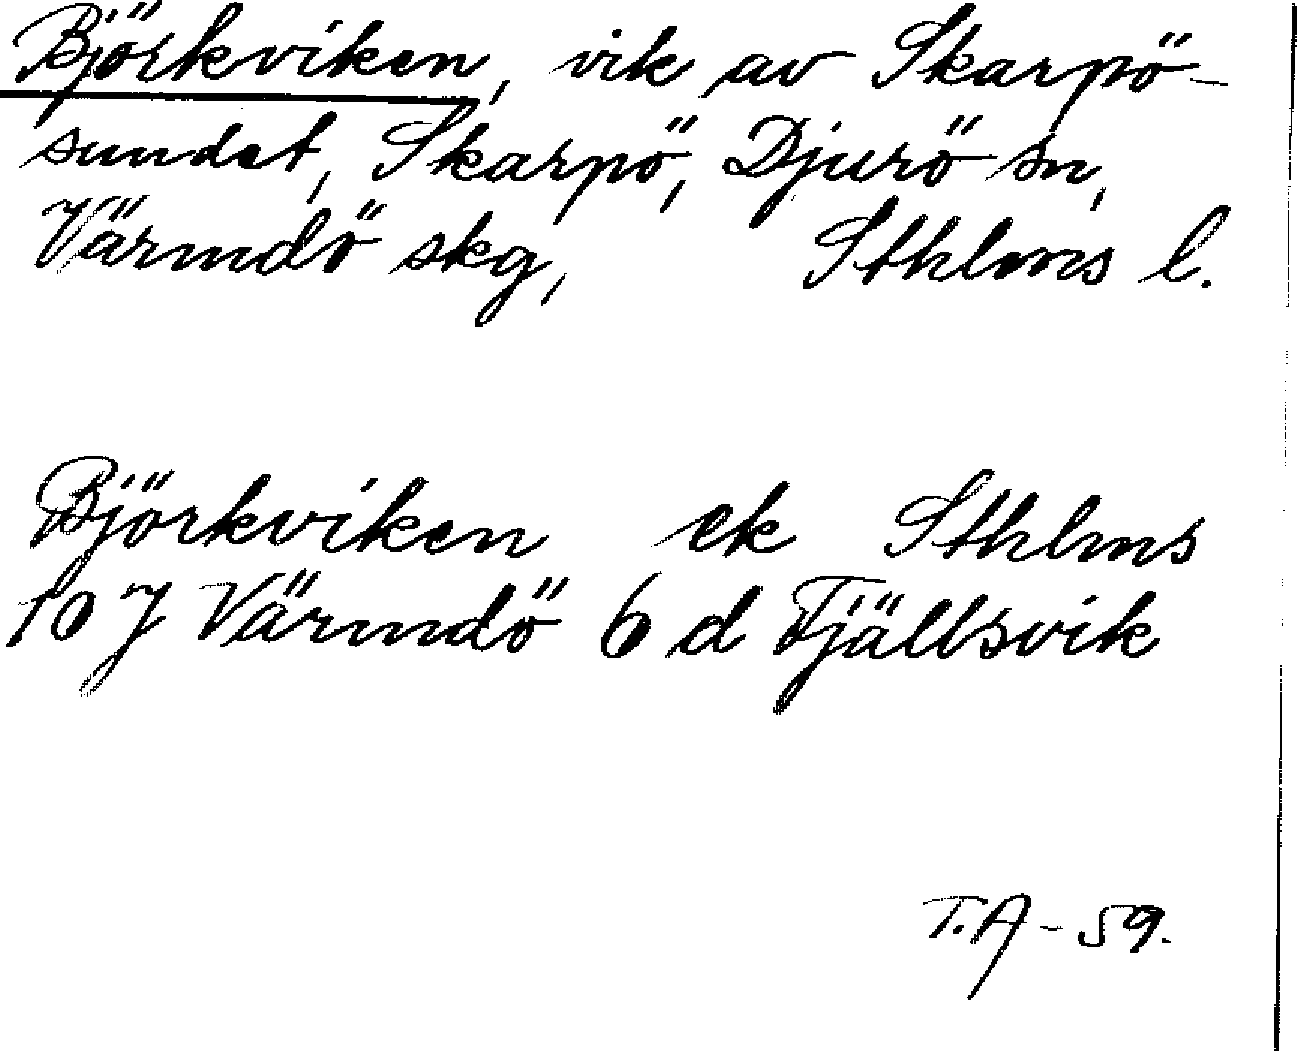 Björkviken, vik av Skarpö-
sundet, Skarpö, Djurö sn,
Värmdö skg, Sthlms l.
Björkviken ek Sthlms
10 J Värmdö 6 d Fjällsvik
T.A - 59.